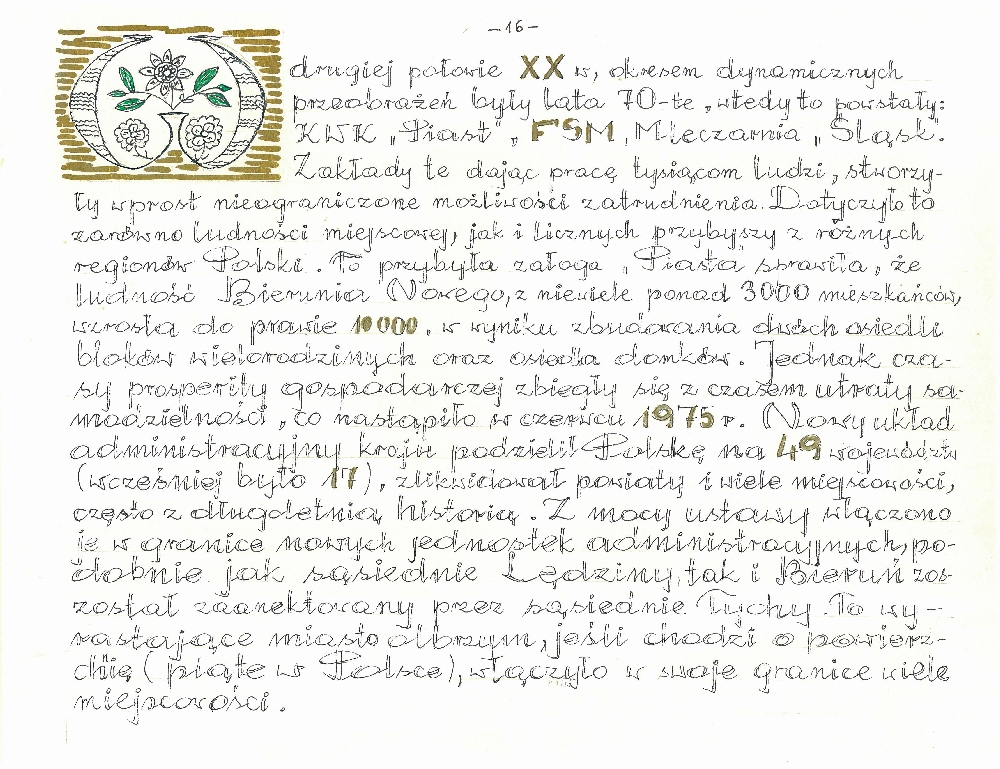 -16-
W drugiej połowie XX w, okresem dynamicznych
przeobrażeń były lata 70-te, wtedy to powstały:
KWK „Piast", FSM, Mleczarnia „Śląsk".
Zakłady te dając pracę tysiącom ludzi, stworzy-
ły wprost nieograniczone możliwości zatrudnienia. Dotyczyło to
zarówno ludności miejscowej, jak i licznych przybyszy z różnych
regionów Polski. To przybyła załoga „Piasta" sprawiła, że
ludność Bierunia Nowego, z niewiele ponad 3000 mieszkańców,
wzrosła do prawie 10 000, w wyniku zbudowania dwóch osiedli
bloków wielorodzinnych oraz osiedla domków. Jednak cza-
sy prosperity gospodarczej zbiegły się z czasem utraty sa-
modzielności, co nastąpiło w czerwcu 1975 r. Nowy układ
administracyjny kraju podzielił Polskę na 49 województw
(wcześniej było 17), zlikwidował powiaty i wiele miejscowości,
często z długoletnią historią. Z mocy ustawy włączono
je w granice nowych jednostek administracyjnych, po-
dobnie jak sąsiednie Lędziny, tak i Bieruń zos-
został zaanektowany przez sąsiednie Tychy. To wy-
rastające miasto olbrzym, jeśli chodzi o powierz-
chnię (piąte w Polsce), włączyło w swoje granice wiele
miejscowości.